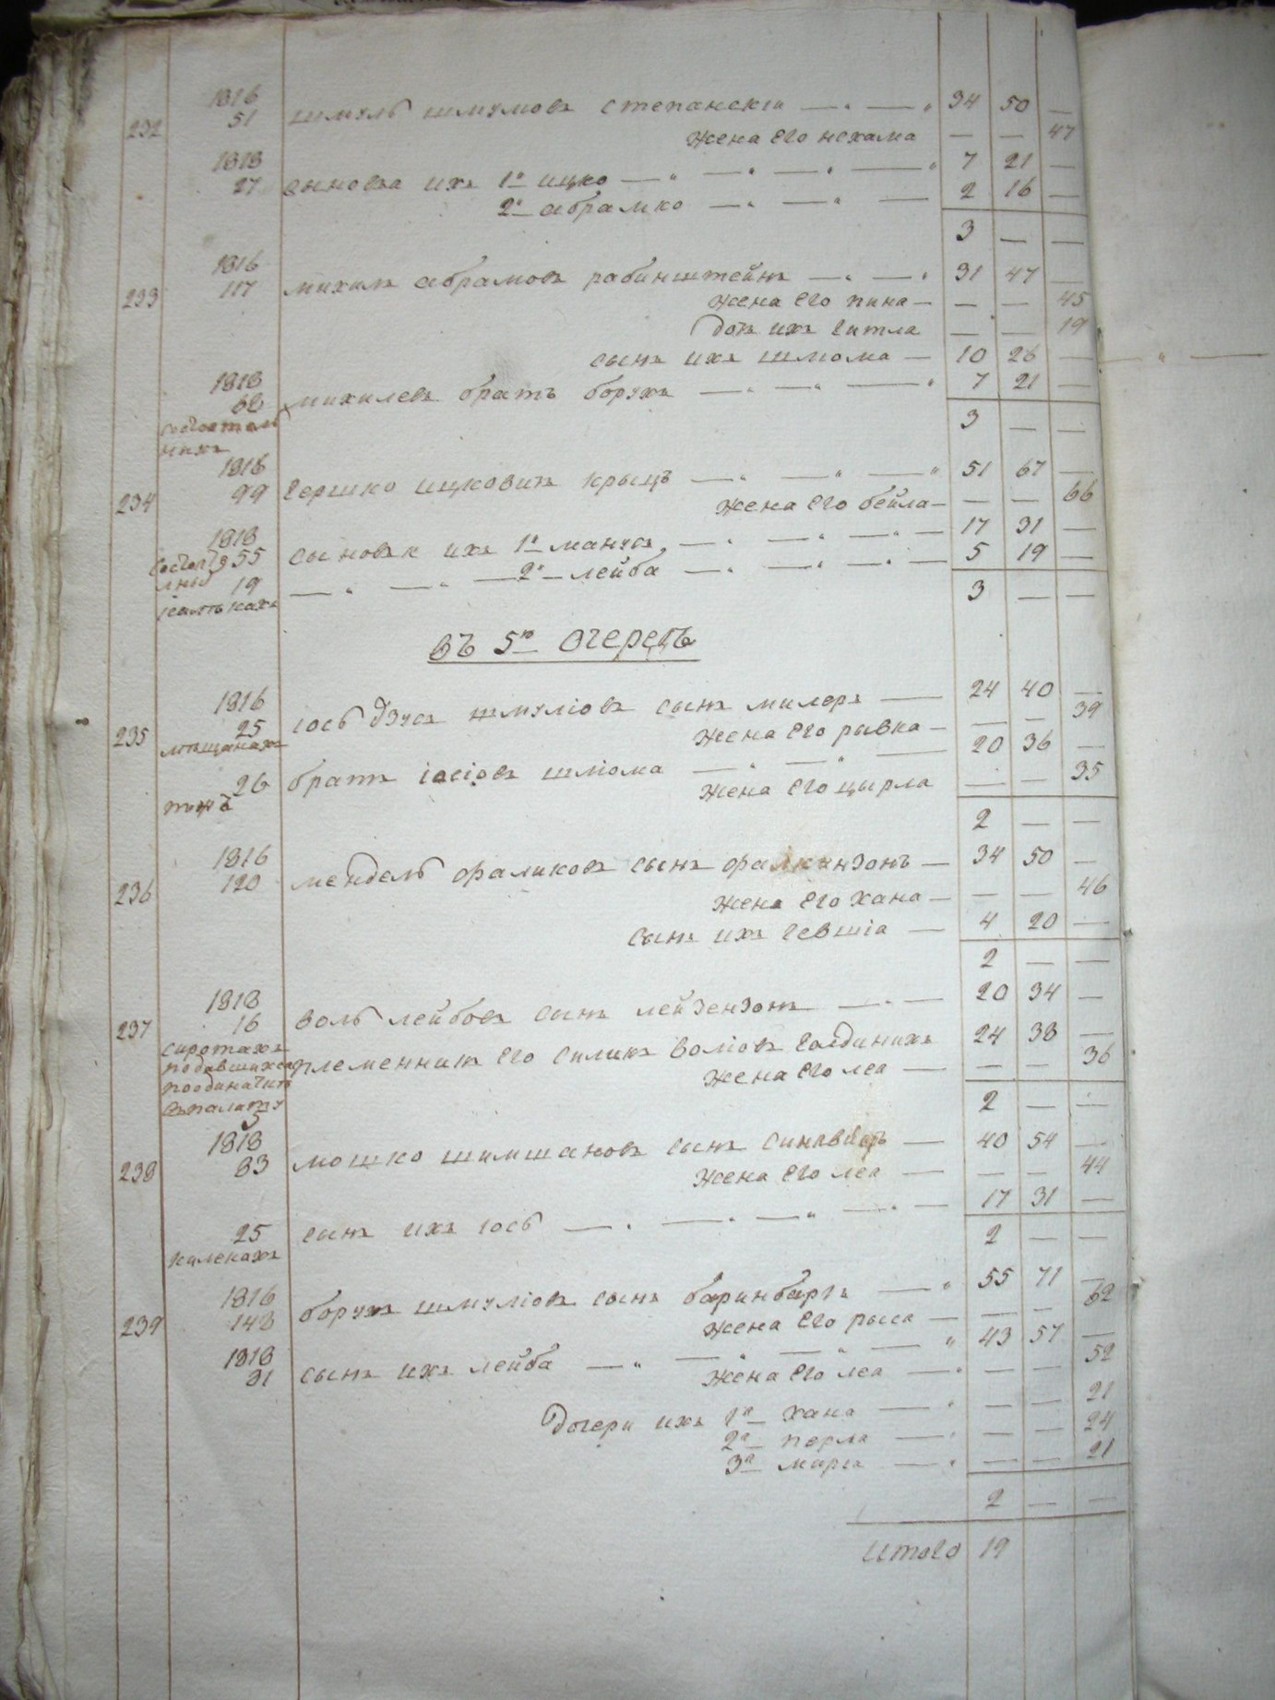 1816
232 51 шмуль шмулювъ степанскій — 34 50 —
жена его нехама — — 47
1818
27 сыновья ихъ 1й ицко — 7 21 —
2й абрамко — 2 16 —
3 — —
1816
233 117 михиль абрамовъ рабинштейнъ — 31 47 —
жена его пина — — — 45
дочь ихъ гитла — — 19
сынъ ихъ шлома — 10 26 —
1818
михилевъ братъ борухъ — 7 21 —
3 — —
1816
234 99 гершко ицковичъ крыцъ — 51 67 —
жена его бейла — — — 66
1818
55 сыновья ихъ 1й манусъ — 17 31 —
19 2й лейба — 5 19 —
3 — —
въ 5ю очередь
1816
235 25 іось шмуліовъ сынъ милеръ — 24 40 —
мещанахъ жена его рывка — — — 39
26 братъ іосіовъ шліома — 20 36 —
тожъ жена его цырла — — 35
2 — —
1816
236 120 мендель фаликовъ сынъ фалкинзонъ — 34 50 —
жена его хана — — — 46
сынъ ихъ гевшіа — 4 20 —
2 — —
1818
237 16 воль лейбовъ сынъ лейзензонъ — 20 34 —
сиротахъ
подавшихся племенникъ его силикъ воліовъ 24 38 —
поодиначкѣ жена его леа — — — 36
въ палату
2 — —
1818
238 83 мошко шимшановъ сынъ — 40 54 —
жена его леа — — — 44
25 сынъ ихъ іось — 17 31 —
калекахъ 2 — —
1816
239 148 борухъ шмуліовъ сынъ баринбаргъ — 55 71 —
жена его рыса — — — 62
1818
31 сынъ ихъ лейба — 43 57 —
жена его леа — — — 52
дочери ихъ 1я хана — — — 21
2я перла — — — 24
3я мирка — — — 21
2 — —
итого 19